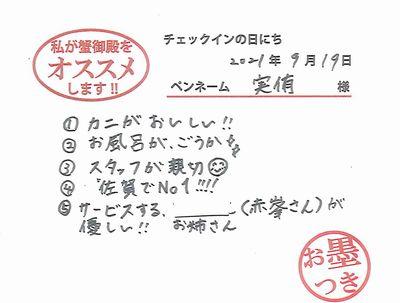 私が蟹御殿を
オススメ
します!!
チェックインの日にち
2021年 9月19日
ペンネーム 実侑 様
① カニがおいしい!!
② お風呂が、ごうか
③ スタッフが親切
④ 佐賀でNo1!!!!
⑤ サービスする、＿＿＿(赤峯さん)が
優しい!! お姉さん
お墨
つき